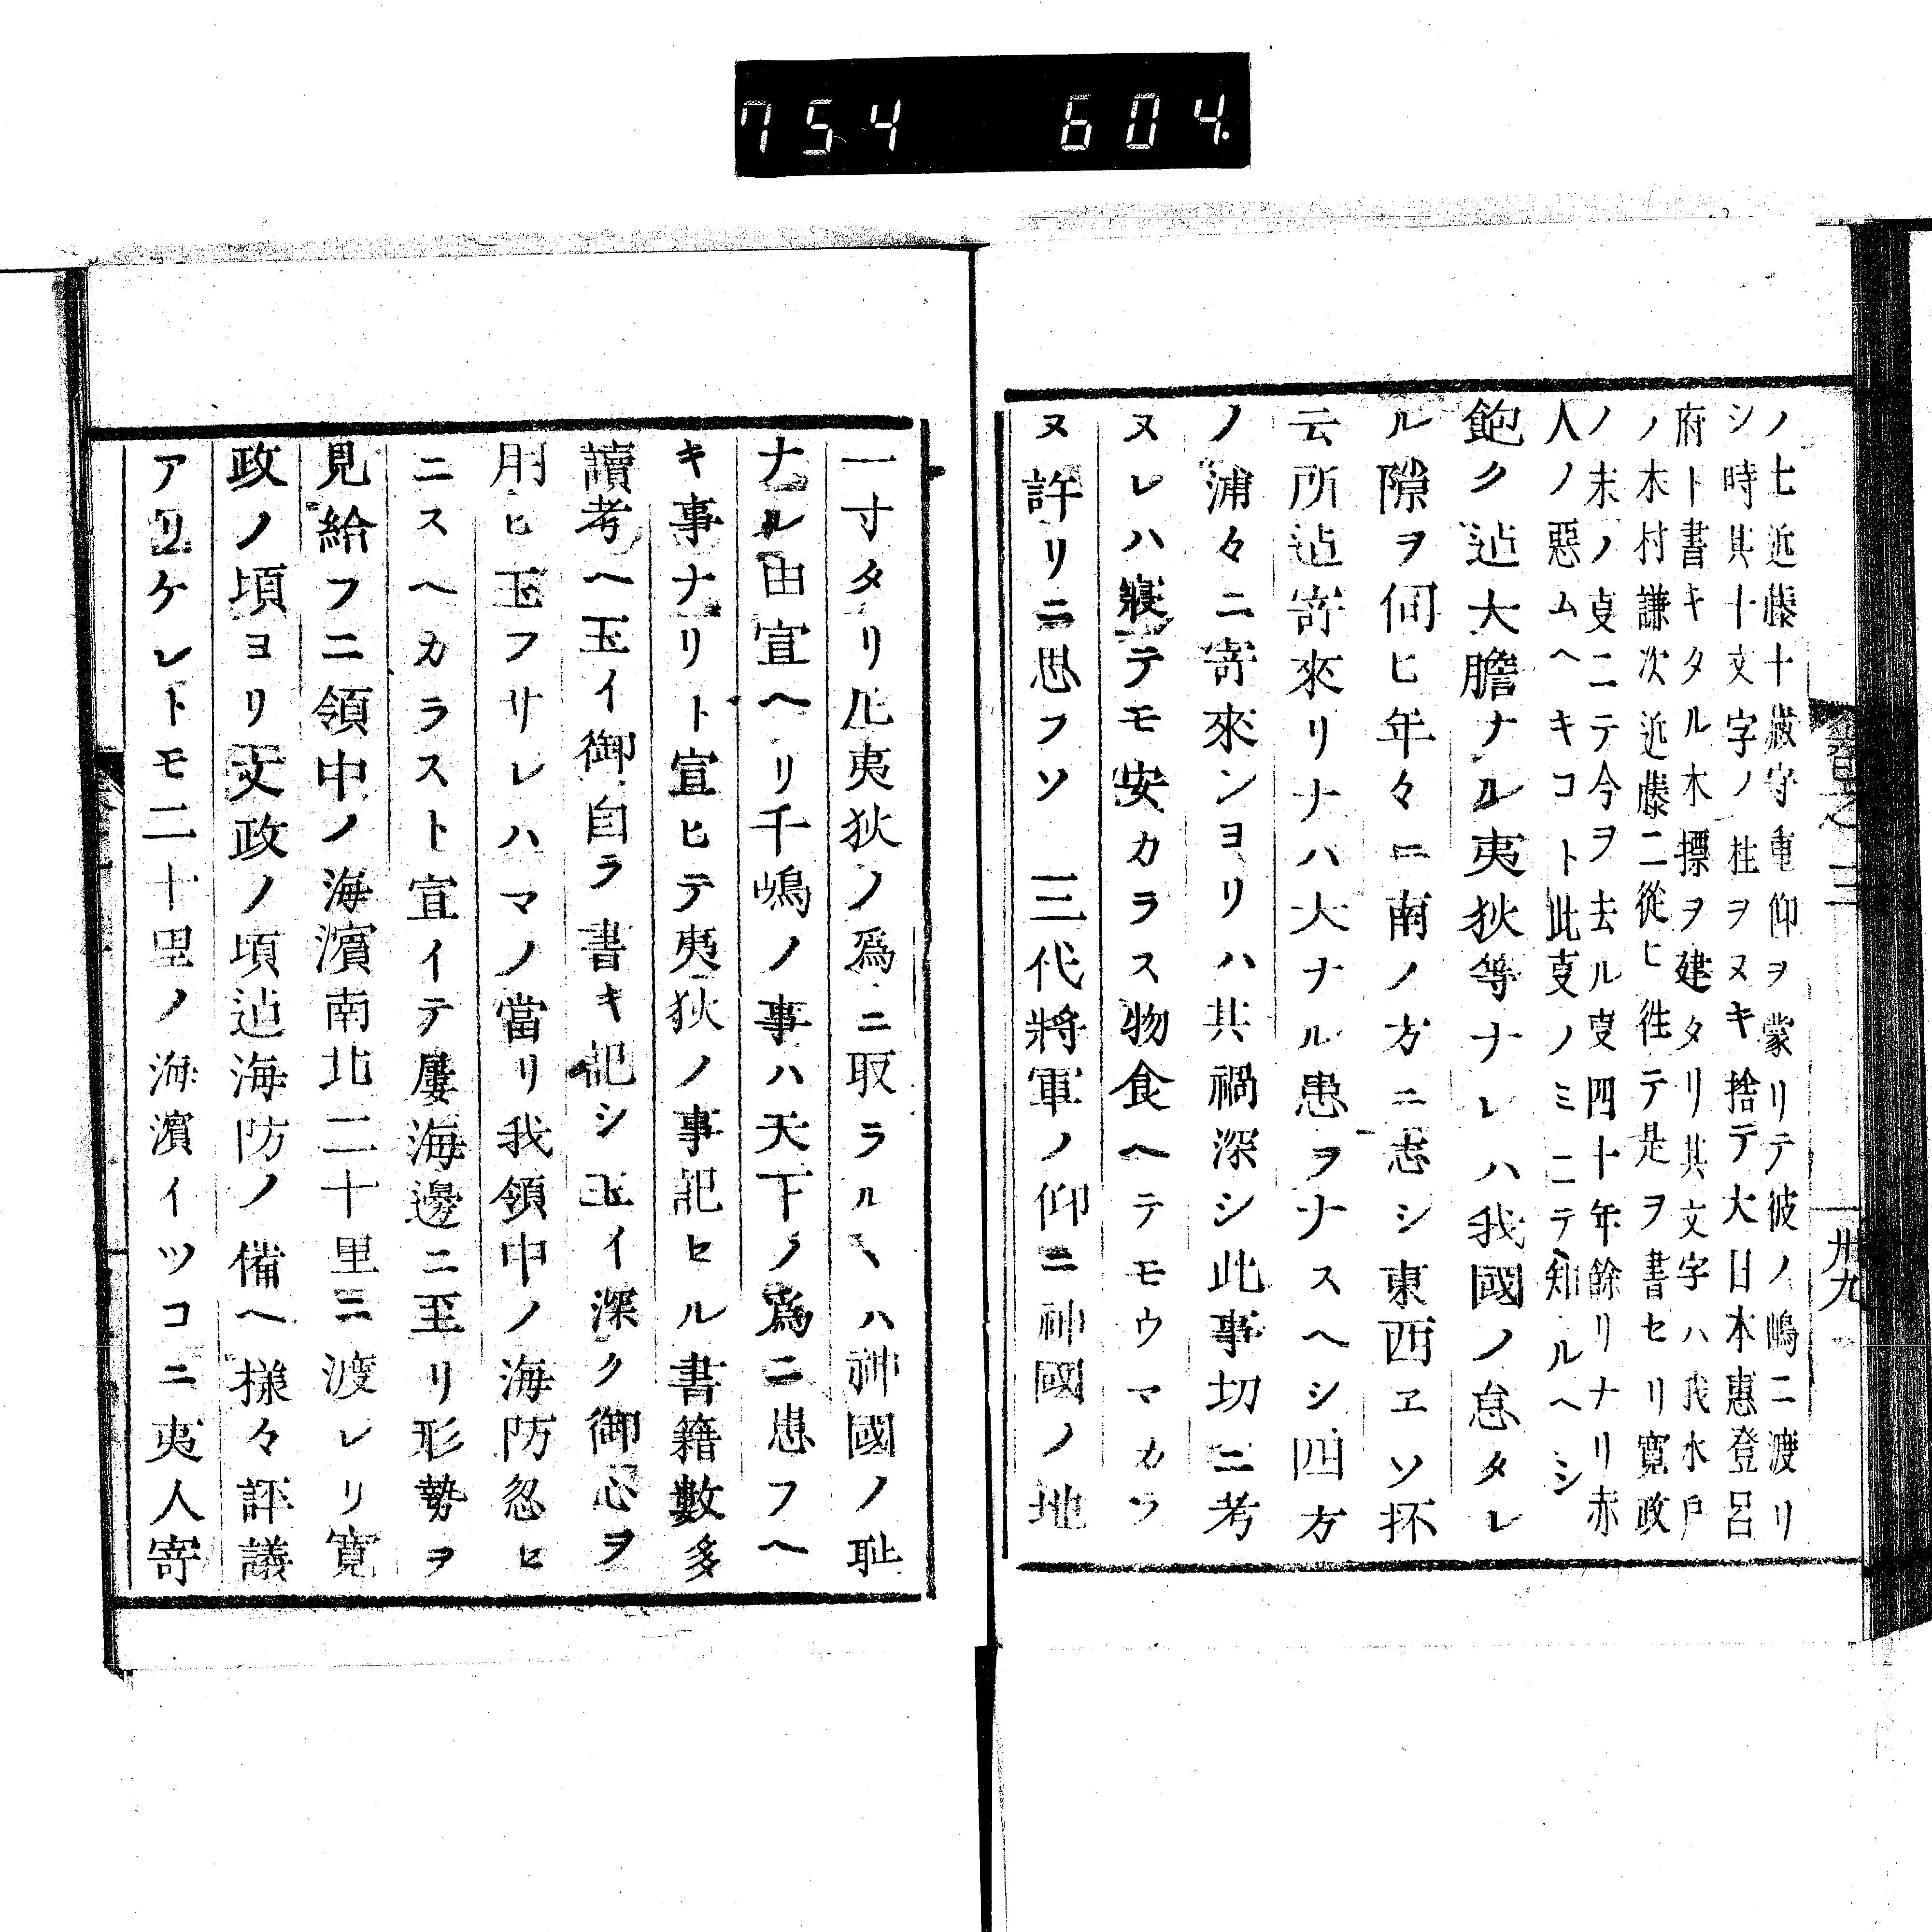 754 604.
ノ七近藤十蔵守重仰ヲ蒙リテ彼ノ嶋ニ渡リ
シ時其十文字ノ柱ヲヌキ捨テ大日本惠登呂
府ト書キタル木摽ヲ建タリ其文字ハ我水戸
ノ木村謙次近藤二從ヒ徃テ是ヲ書セリ寛政
ノ末ノ叓ニテ今ヲ去ル叓四十年餘リナリ赤
人ノ惡ムヘキコト此叓ノミニテ知ルヘシ
飽ク迠大膽ナル夷狄等ナレハ我國ノ怠タレ
ル隙ヲ伺ヒ年々ニ南ノ方ニ志シ東西ヱソ抔
云所迠寄來リナハ大ナル患ヲナスヘシ四方
ノ浦々ニ寄來ンヨリハ其禍深シ此事切ニ考
ヌレハ寢テモ安カラス物食ヘテモウマカラ
ヌ許リニ思フソ 三代將軍ノ仰ニ神國ノ地
卅九
一寸タリ𪜈夷狄ノ爲ニ取ラルヽハ神國ノ耻
ナル由宣ヘリ千嶋ノ事ハ天下ノ爲ニ患フヘ
キ事ナリト宣ヒテ夷狄ノ事記セル書籍數多
讀考ヘ玉イ御自ラ書キ記シ玉イ深ク御心ヲ
用ヒ玉フサレハマノ當リ我領中ノ海防忽ヒ
ニスヘカラスト宣イテ屢海邊ニ至リ形勢ヲ
見給フニ領中ノ海濱南北二十里ニ渡レリ寛
政ノ頃ヨリ文政ノ頃迠海防ノ備ヘ様々評議
アリケレトモ二十里ノ海濱イツコニ夷人寄